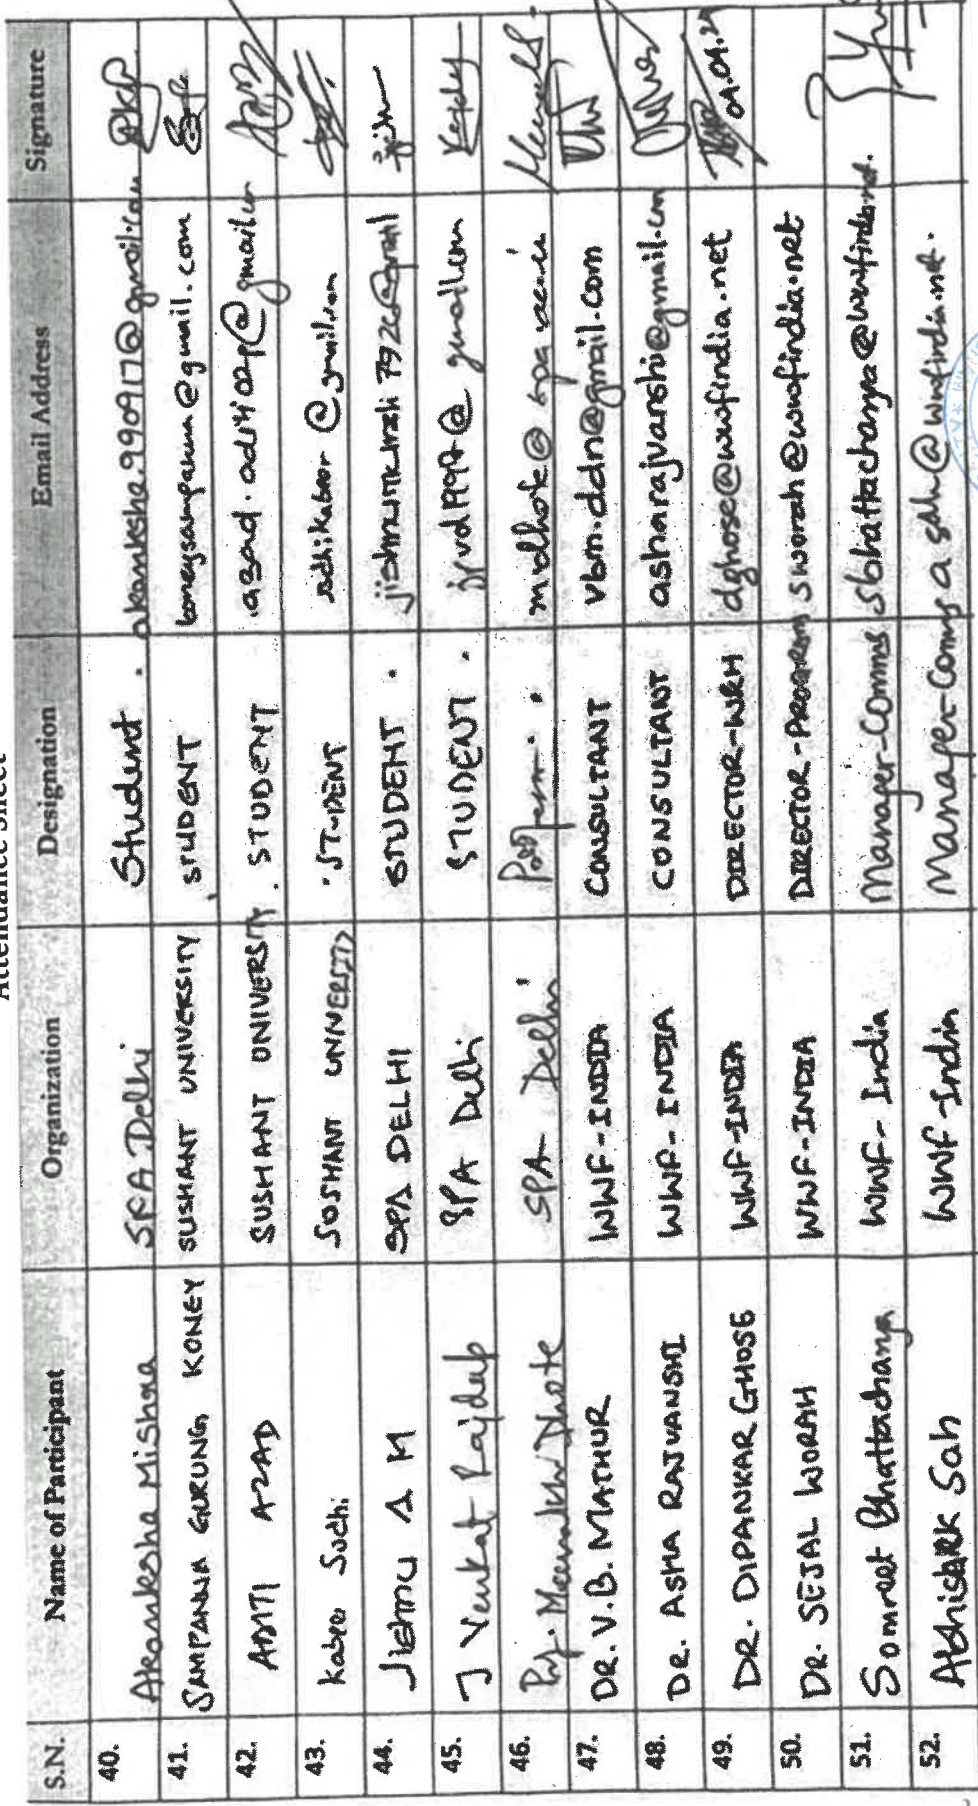 Attendance Sheet
S.N. Name of Participant Organization Designation Email Address Signature
40. Akanksha Mishra SPA Delhi Student. akanksha.990917@gmail.com
41. SAMPANNA GURUNG KONEY SUSHANT UNIVERSITY STUDENT koneysampanna@gmail.com
42. ADITI AZAD SUSHANT UNIVERSITY. STUDENT
43. Kabeer Sodhi SUSHANT UNIVERSITY STUDENT sodhikabeer@gmail.com
44. Jishnu A M SPA DELHI STUDENT.
45. J Venkat Rajdeep SPA Delhi STUDENT. jpvd1997@gmail.com
46. Prof. Meenakshi Dhote SPA Delhi Professor.
47. DR. V.B. MATHUR WWF-INDIA CONSULTANT vbm.ddn@gmail.com
48. DR. ASHA RAJVANSHI WWF-INDIA CONSULTANT asharajvanshi@gmail.com
49. DR. DIPANKAR GHOSE WWF-INDIA DIRECTOR-WRH dghose@wwfindia.net
50. DR. SEJAL WORAH WWF-INDIA DIRECTOR-PROGRAM sworah@wwfindia.net
51. Somreet Bhattacharya WWF-India Manager-Comms sbhattacharya@wwfindia.net.
52. Abhishek Sah WWF-India Manager-Comms asah@wwfindia.net.